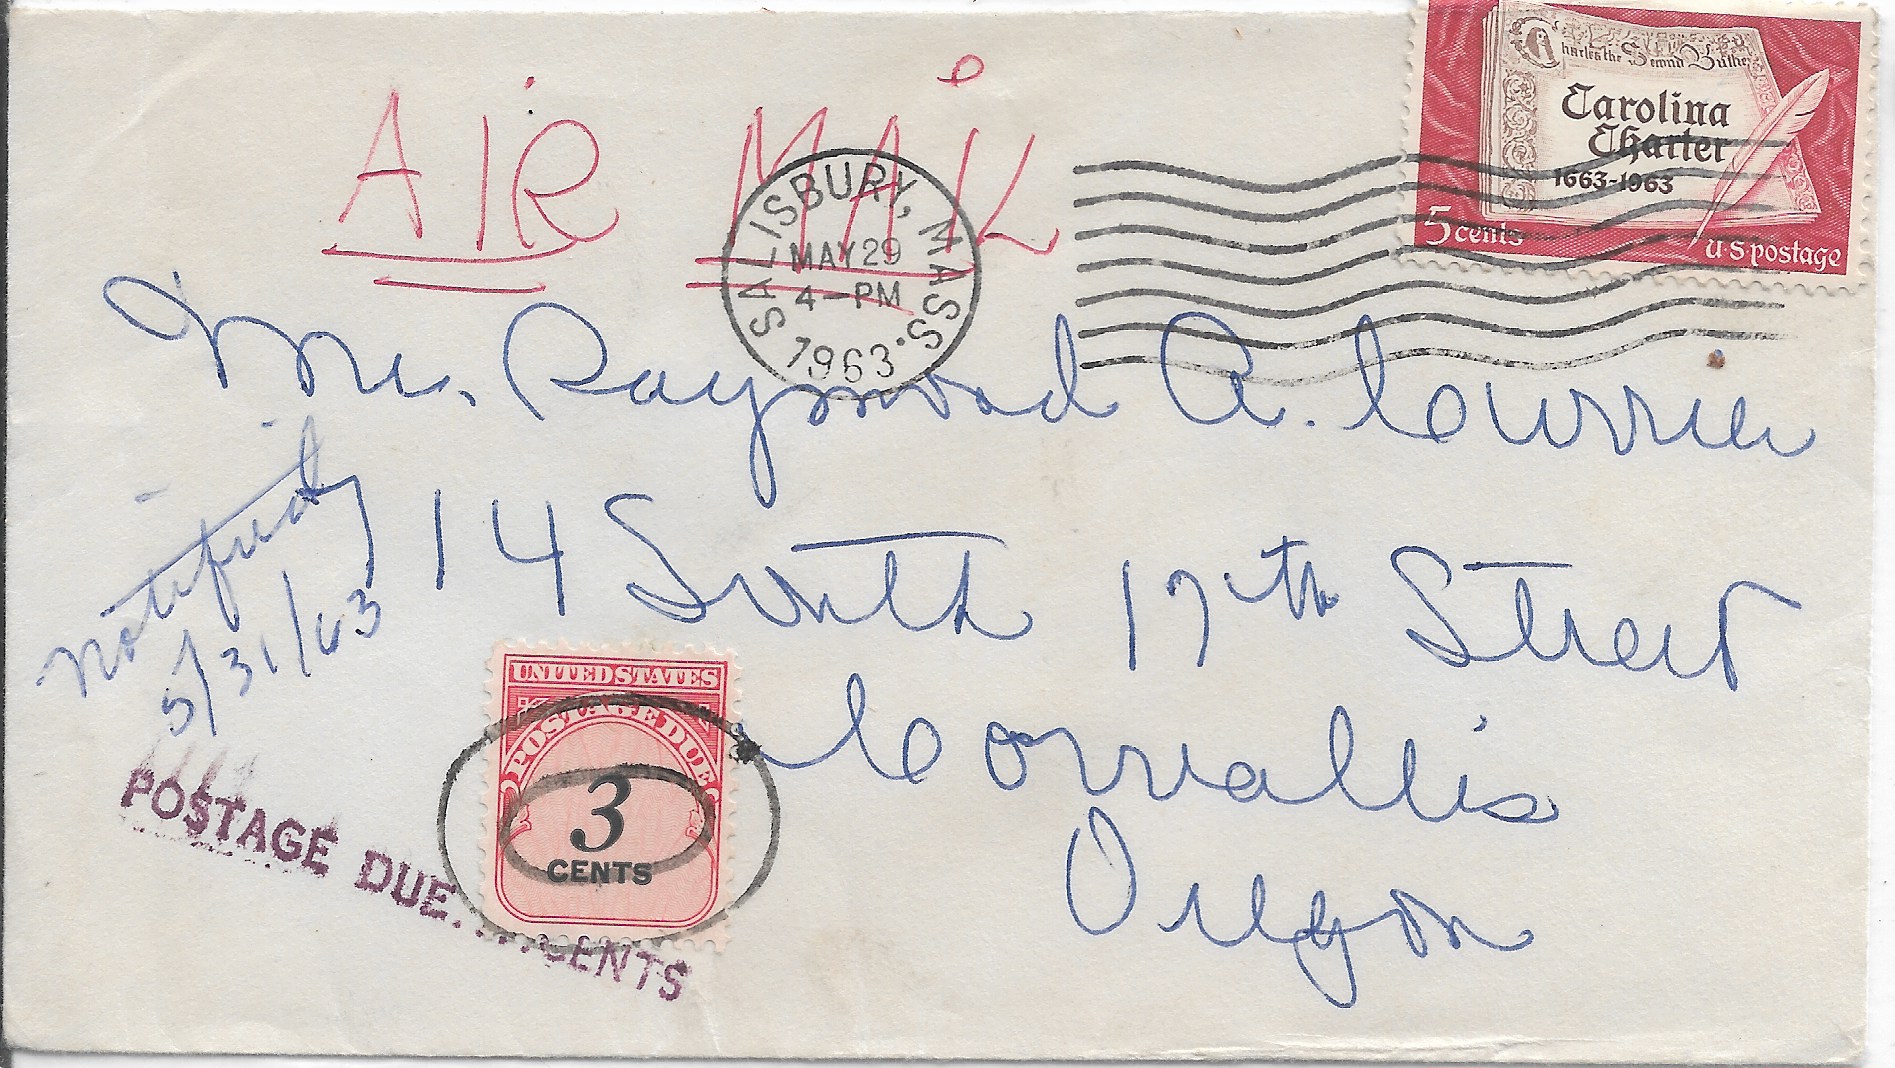 AIR MAIL
Charles the Second
Carolina
Charter
1663-1963
5 cents
U·S postage
SALISBURY, MASS.
MAY 29
4-PM
1963
Mr. Raymond A. Currier
14 South 17th Street
Corvallis
Oregon
Notified
5/31/63
UNITED STATES
POSTAGE DUE
3
CENTS
POSTAGE DUE....CENTS